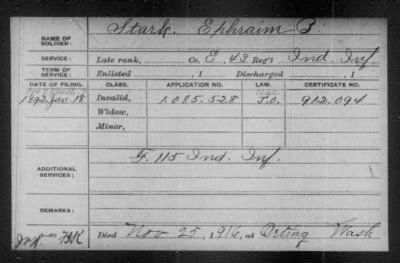 NAME OF SOLDIER: Stark, Ephraim B.
SERVICE: Late rank, Co. E, 43 Reg't Ind. Inf.
TERM OF SERVICE: Enlisted , 1 Discharged , 1
DATE OF FILING. CLASS. APPLICATION NO. LAW. CERTIFICATE NO.
1892 Jan. 18 Invalid, 1.085.528 J.O. 912.094
Widow,
Minor,
ADDITIONAL SERVICES: F. 115 Ind. Inf.
REMARKS:
Died Nov 25, 1916, at Orting Wash